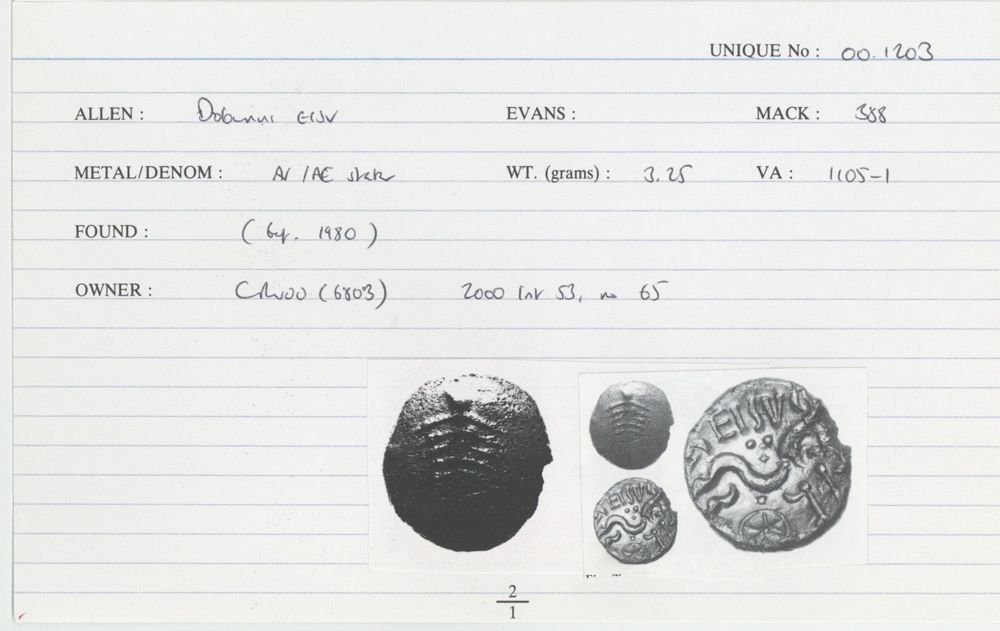 UNIQUE No : 00.1203
ALLEN : Dobunni EISV EVANS : MACK : 388
METAL/DENOM : AV /AE stater WT. (grams) : 3.25 VA : 1105-1
FOUND : ( 1980 )
OWNER : (6803) 2000 Inv 53, no 65
EISV
EISV
2
1